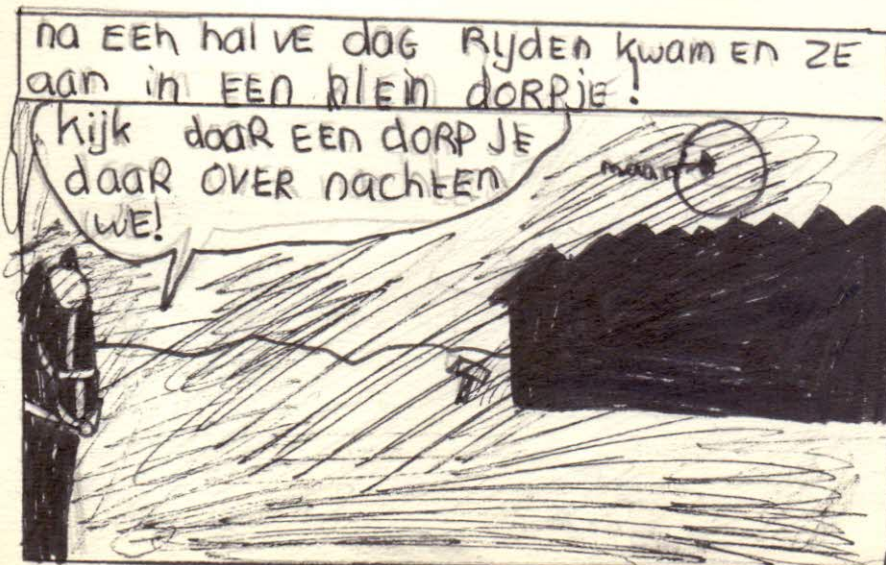 na EEn halVE daG RijdEn kwamEn ZE
aan in EEn klEin dORPjE!
kijk daaR EEn dORPJE
daaR OVER nachtEn
WE!
maan